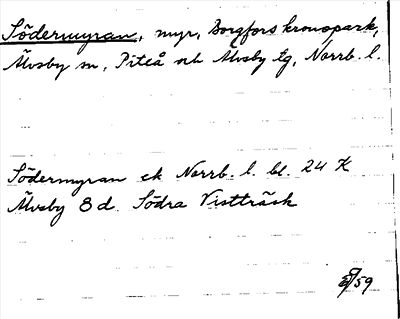 Södermyran, myr, Borgfors kronopark,
Älvsby sn, Piteå och Älvsby tg, Norrb. l.
Södermyran ek Norrb. l. bl. 24 K
Älvsby 8 d Södra Vistträsk
59